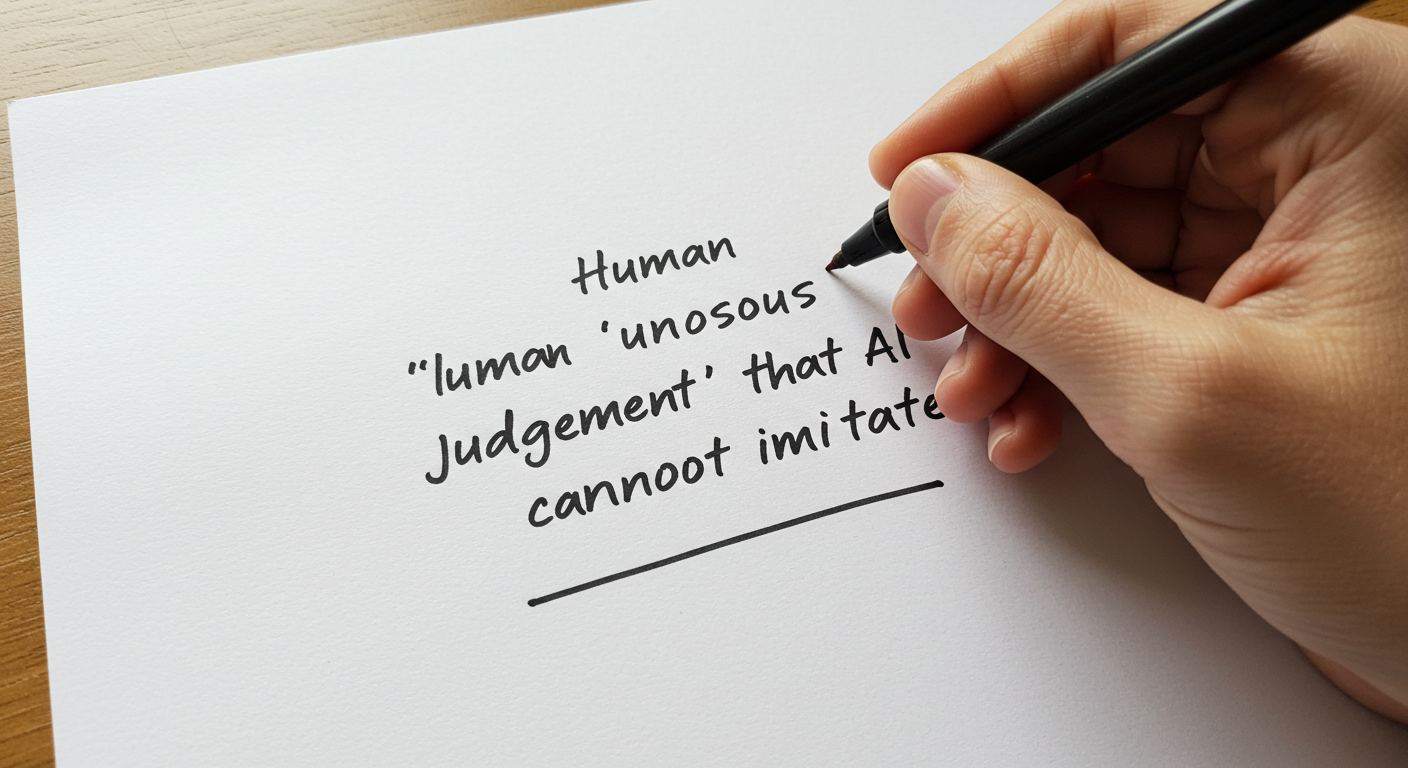 Human
"luman 'unosous
Judgement' that AI
cannoot imitate